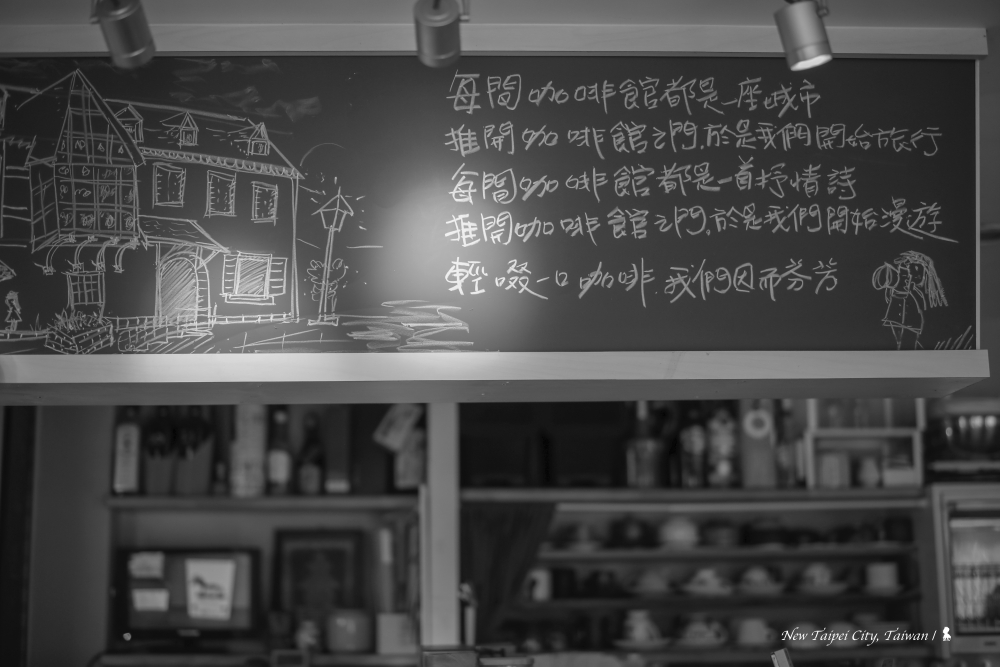 每間咖啡館都是一座城市
推開咖啡館之門,於是我們開始旅行
每間咖啡館都是一首抒情詩
推開咖啡館之門,於是我們開始漫遊
輕啜一口咖啡,我們因而芬芳
New Taipei City, Taiwan |